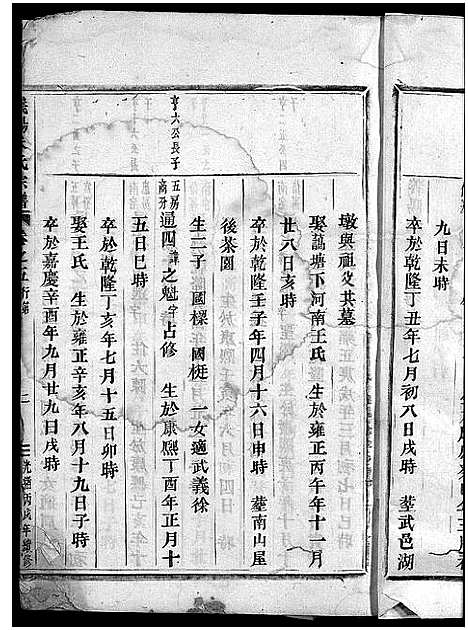 九日未時
卒於乾隆丁丑年七月初八日戌時　塟武邑湖
墩與祖父共墓
娶蒿塘下河南王氏　生於雍正丙午年十一月
廿八日亥時
卒於乾隆壬子年四月十六日申時　塟南山屋
後茶園
生二子　國樑　國梃　一女適武義徐
亨六公長子
五房
商分
通四諱之魁字占修　生於康熙丁酉年正月十
五日巳時
卒於乾隆丁亥年七月十五日卯時
娶王氏　生於雍正辛亥年八月十九日子時
卒於嘉慶辛酉年九月廿九日戌時
光緒丙戌年續修